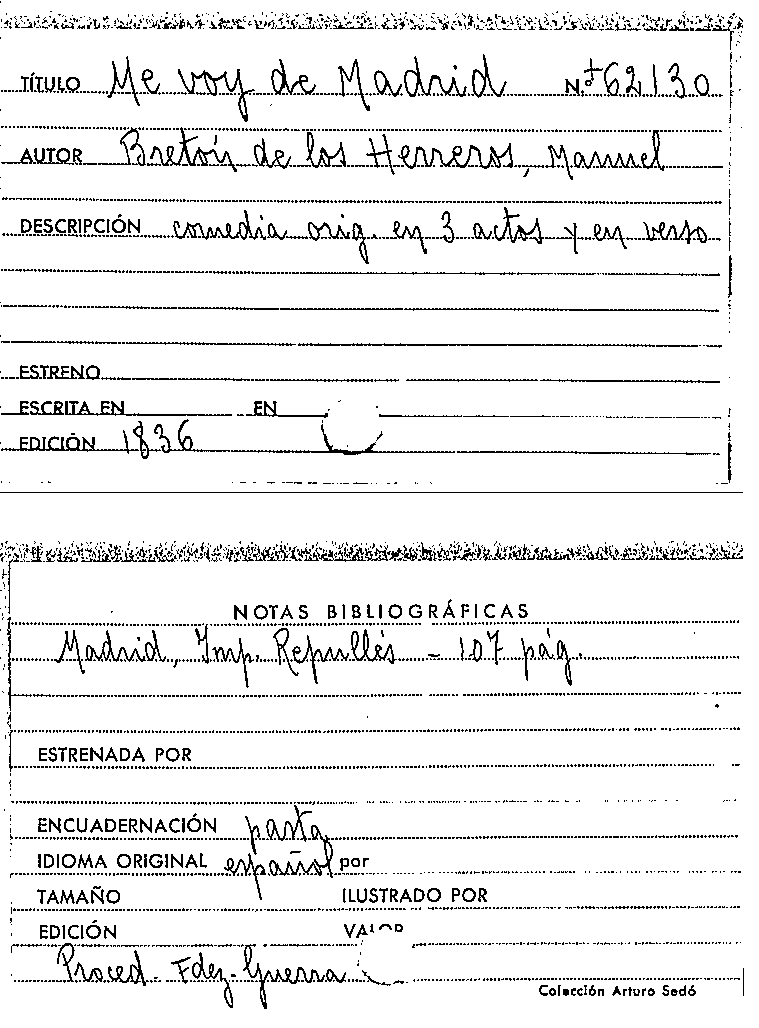 TÍTULO Me voy de Madrid N.º 62130
AUTOR Bretón de los Herreros, Manuel
DESCRIPCIÓN comedia orig. en 3 actos y en verso
ESTRENO
ESCRITA EN EN
EDICIÓN 1836
NOTAS BIBLIOGRÁFICAS
Madrid, Imp. Repullés - 107 pág.
ESTRENADA POR
ENCUADERNACIÓN pasta
IDIOMA ORIGINAL español por
TAMAÑO ILUSTRADO POR
EDICIÓN VALOR
Proced. Fdez-Guerra
Colección Arturo Sedó